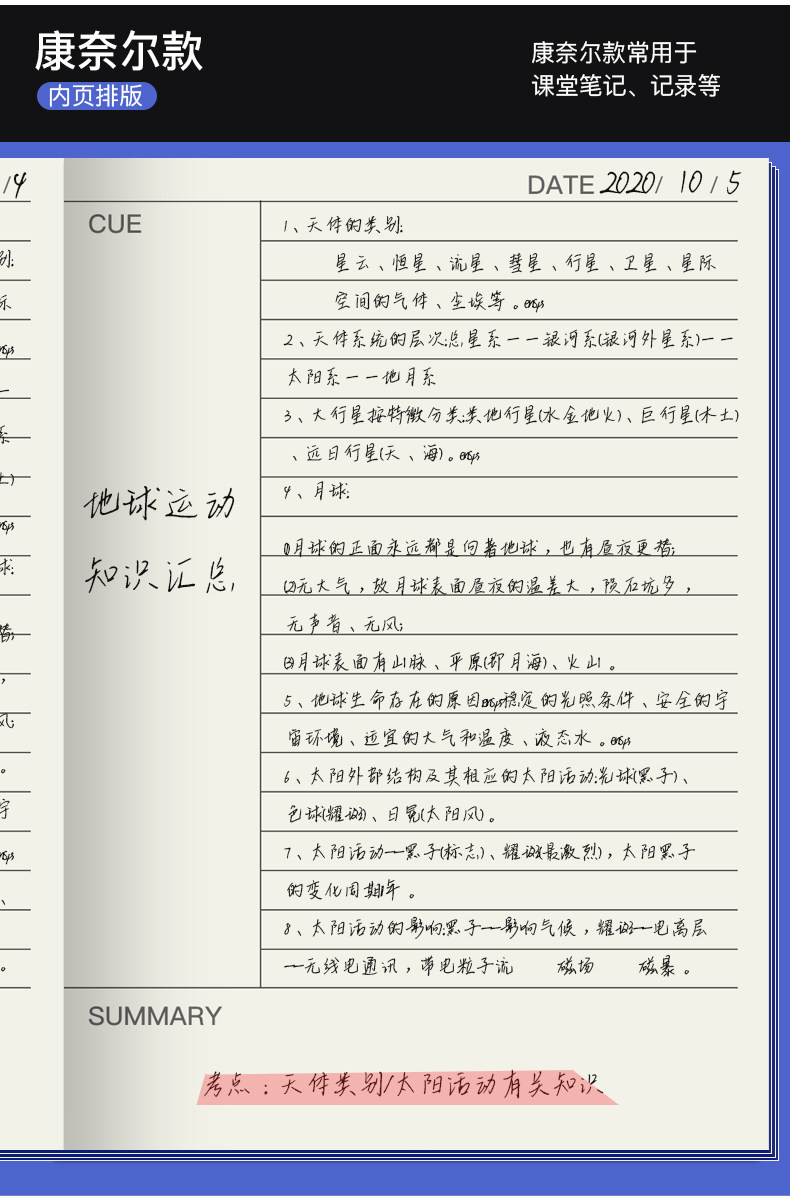 康奈尔款
内页排版
康奈尔款常用于
课堂笔记、记录等
/4
DATE 2020/ 10 / 5
CUE
地球运动
知识汇总
1、天体的类别:
星云、恒星、流星、彗星、行星、卫星、星际
空间的气体、尘埃等。
2、天体系统的层次:总星系一一银河系(银河外星系)一一
太阳系一一地月系
3、大行星按特徵分类:类地行星(水金地火)、巨行星(木土)
、远日行星(天、海)。
4、月球:
⑴月球的正面永远都是向著地球,也有昼夜更替;
⑵无大气,故月球表面昼夜的温差大,陨石坑多,
无声音、无风;
⑶月球表面有山脉、平原(即月海)、火山。
5、地球生命存在的原因稳定的光照条件、安全的宇
宙环境、适宜的大气和温度、液态水。
6、太阳外部结构及其相应的太阳活动:光球(黑子)、
色球(耀斑)、日冕(太阳风)。
7、太阳活动一黑子(标志)、耀斑(最激烈),太阳黑子
的变化周期年。
8、太阳活动的影响:黑子一影响气候,耀斑一电离层
一无线电通讯,带电粒子流 磁场 磁暴。
SUMMARY
考点:天体类别/太阳活动有关知识